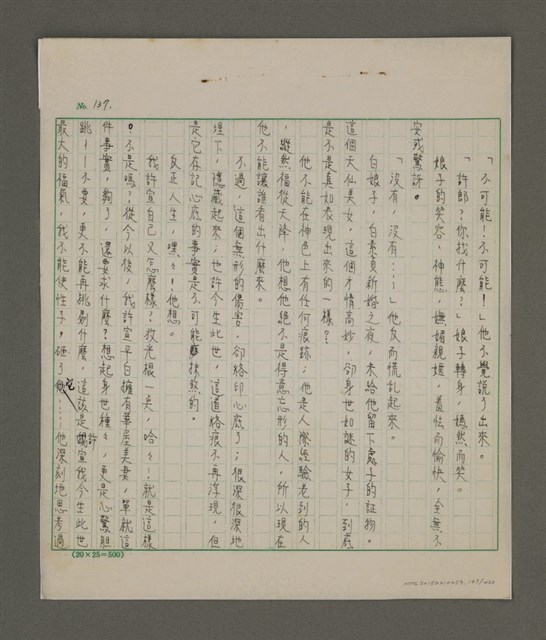 No. 137.
「不可能！不可能！」他不覺說了出來。
「許郎？你找什麼？」娘子轉身，嫣然而笑。
娘子的笑容、神態，嫵媚親媚，羞怯而愉快，全無不
安或驚訝。
「沒有，沒有…！」他反而慌乱起來。
白娘子，白素貞新婚之夜，未給他留下處子的証物。
這個天仙美女，這個才情高妙，卻身世如謎的女子，到底
是不是真如表現出來的一樣？
他不能在神色上有任何痕跡；他是人際經驗老到的人
，縱然福從天降，他想他絕不是得意忘形的人，所以現在
他不能讓誰看出什麼來。
不過，這個無形的傷害，卻烙印心底了；很深很深地
埋下，隱藏起來；也許今生此世，這道烙痕不再浮現，但
是它在記心底的事實是不可能抹煞的。
反正人生，嘿々！他想。
我許宣自己又怎麼樣？救光棍一矣，哈々！就是這樣
。不是嗎？從今以後，我許宣平白擁有華屋美妻，單就這
件事實，夠了，還要求什麼？想起身世種々，更是心驚胆
跳！！不要，更不能再挑剔什麼，這該是許宣我今生此世
最大的福氣，我不能使性子，砸了它…！他深刻地思考過
(20×25=500)